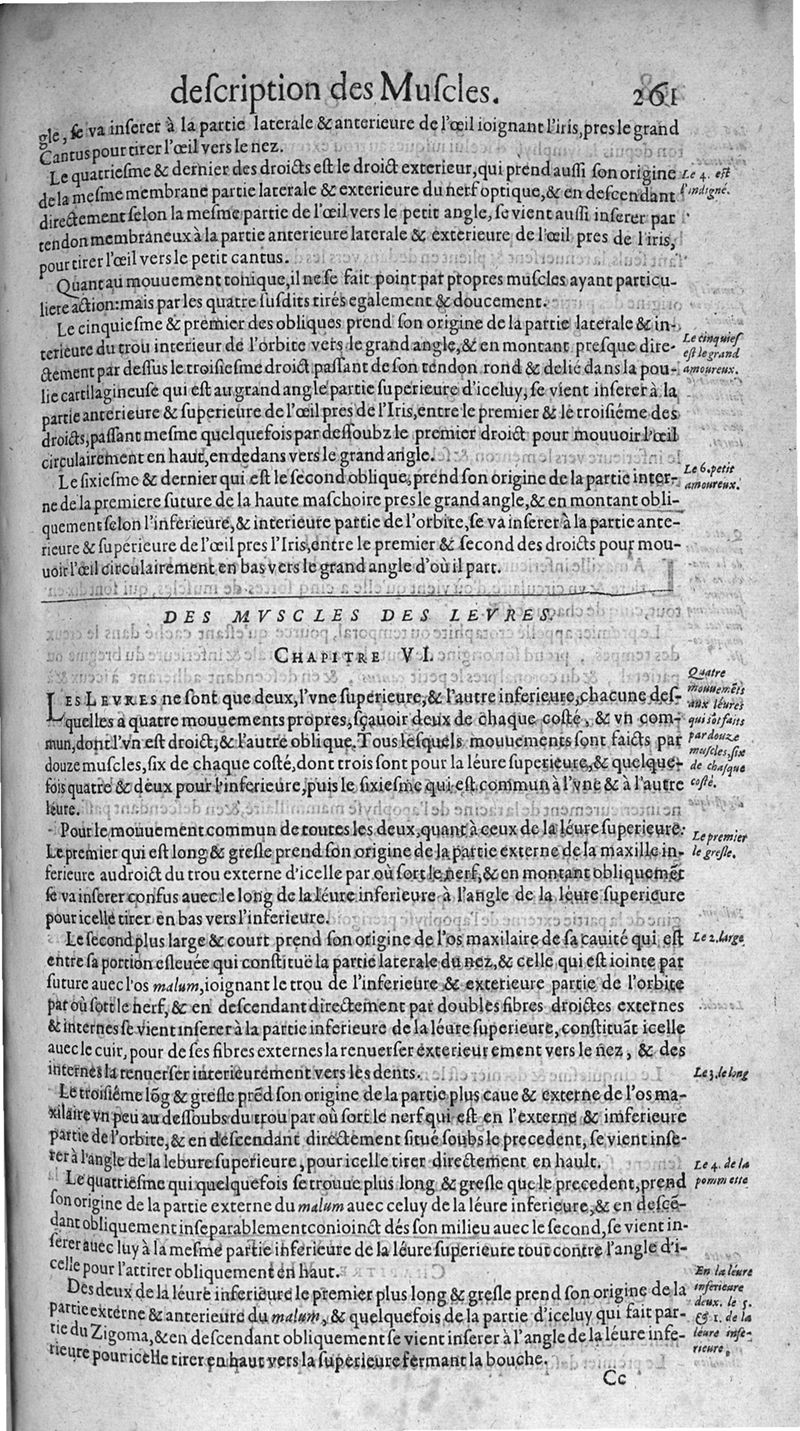 deſcription des Muſcles. 261
gle, ſe va inſerer à la partie laterale & anterieure de l'œil ioignant l'iris, pres le grand
Cantus pour tirer l'œil vers le nez.
Le quatrieſme & dernier des droicts eſt le droict exterieur, qui prend auſſi ſon origine
de la meſme membrane partie laterale & exterieure du nerf optique, & en deſcendant
directement ſelon la meſme partie de l'œil vers le petit angle, ſe vient auſſi inſerer par
tendon membraneux à la partie anterieure laterale & exterieure de l'œil pres de l'iris,
pour tirer l'œil vers le petit cantus.
Le 4. eſt
l'indigné.
Quant au mouuement tonique, il ne ſe fait point par propres muſcles ayant particu-
liere action: mais par les quatre ſuſdits tirés egalement & doucement.
Le cinquieſme & premier des obliques prend ſon origine de la partie laterale & in-
terieure du trou interieur de l'orbite vers le grand angle, & en montant preſque dire-
ctement par deſſus le troiſieſme droict paſſant de ſon tendon rond & delié dans la pou-
lie cartilagineuſe qui eſt au grand angle partie ſuperieure d'iceluy, ſe vient inſerer à la
partie anterieure & ſuperieure de l'œil pres de l'Iris, entre le premier & le troiſiéme des
droicts, paſſant meſme quelquefois par deſſoubz le premier droict pour mouuoir l'œil
circulairement en haut, en dedans vers le grand angle.
Le cinquieſ
eſt le grand
amoureux.
Le ſixieſme & dernier qui eſt le ſecond oblique, prend ſon origine de la partie inter-
ne de la premiere ſuture de la haute maſchoire pres le grand angle, & en montant obli-
quement ſelon l'inferieure, & interieure partie de l'orbite, ſe va inſerer à la partie ante-
rieure & ſupérieure de l'œil pres l'Iris, entre le premier & ſecond des droicts pour mou-
uoir l'œil circulairement en bas vers le grand angle d'où il part.
Le 6. petit
amoureux.
DES MVSCLES DES LEVRES.
CHAPITRE VI.
LES LEVRES ne ſont que deux, l'vne ſuperieure, & l'autre inferieure, chacune deſ-
quelles a quatre mouuements propres, ſçauoir deux de chaque coſté, & vn com-
mun, dont l'vn eſt droict, & l'autre oblique. Tous leſquels mouuements ſont faicts par
douze muſcles, ſix de chaque coſté, dont trois ſont pour la léure ſuperieure, & quelque-
fois quatre & deux pour l'inferieure, puis le ſixieſme qui eſt commun à l'vne & à l'autre
léure.
Quatre
mouuemēts
aux léures
qui sōt faits
par douze
muſcles, ſix
de chaſque
coſté.
Pour le mouuement commun de toutes les deux, quant à ceux de la léure ſuperieure:
Le premier qui eſt long & greſle prend ſon origine de la partie externe de la maxille in-
ferieure au droict du trou externe d'icelle par où ſort le nerf, & en montant obliquemēt
ſe va inſerer confus auec le long de la léure inferieure à l'angle de la leure ſuperieure
pour icelle tirer en bas vers l'inferieure.
Le premier
le greſle.
Le ſecond plus large & court prend ſon origine de l'os maxilaire de ſa cauité qui eſt
entre ſa portion eſleuée qui conſtituë la partie laterale du nez, & celle qui eſt iointe par
ſuture auec l'os malum, ioignant le trou de l'inferieure & exterieure partie de l'orbite
par où ſort le nerf, & en deſcendant directement par doubles fibres droictes externes
& internes ſe vient inſerer à la partie inferieure de la léure ſuperieure, conſtituāt icelle
auec le cuir, pour de ſes fibres externes la renuerſer exterieur ement vers le nez, & des
internes la renuerſer interieurement vers les dents.
Le 2. large
Le troiſiéme lōg & greſle prēd ſon origine de la partie plus caue & externe de l'os ma-
xilaire vn peu au deſſoubs du trou par où ſort le nerf qui eſt en l'externe & imferieure
partie de l'orbite, & en deſcendant directement ſitué ſoubs le precedent, ſe vient inſe-
rer à l'angle de la lebure ſuperieure, pour icelle tirer directement en hault.
Le 3. le long
Le quatrieſme qui quelquefois ſe trouue plus long & greſle que le precedent, prend
ſon origine de la partie externe du malum auec celuy de la léure inferieure, & en deſcē-
dant obliquement inſeparablement conioinct dés ſon milieu auec le ſecond, ſe vient in-
ſerer auec luy à la meſme partie inferieure de la léure ſuperieure tout contre l'angle d'i-
celle pour l'attirer obliquement en haut.
Le 4. de la
pommette
Des deux de la léure inferieure le premier plus long & greſle prend ſon origine de la
partie externe & anterieure du malum, & quelquefois de la partie d'iceluy qui fait par-
tie du Zigoma, & en deſcendant obliquement ſe vient inſerer à l'angle de la léure infe-
rieure pour icelle tirer en haut vers la ſuperieure fermant la bouche.
En la léure
inferieure
deux. le 5.
& 1. de la
léure infe-
rieure.
Cc